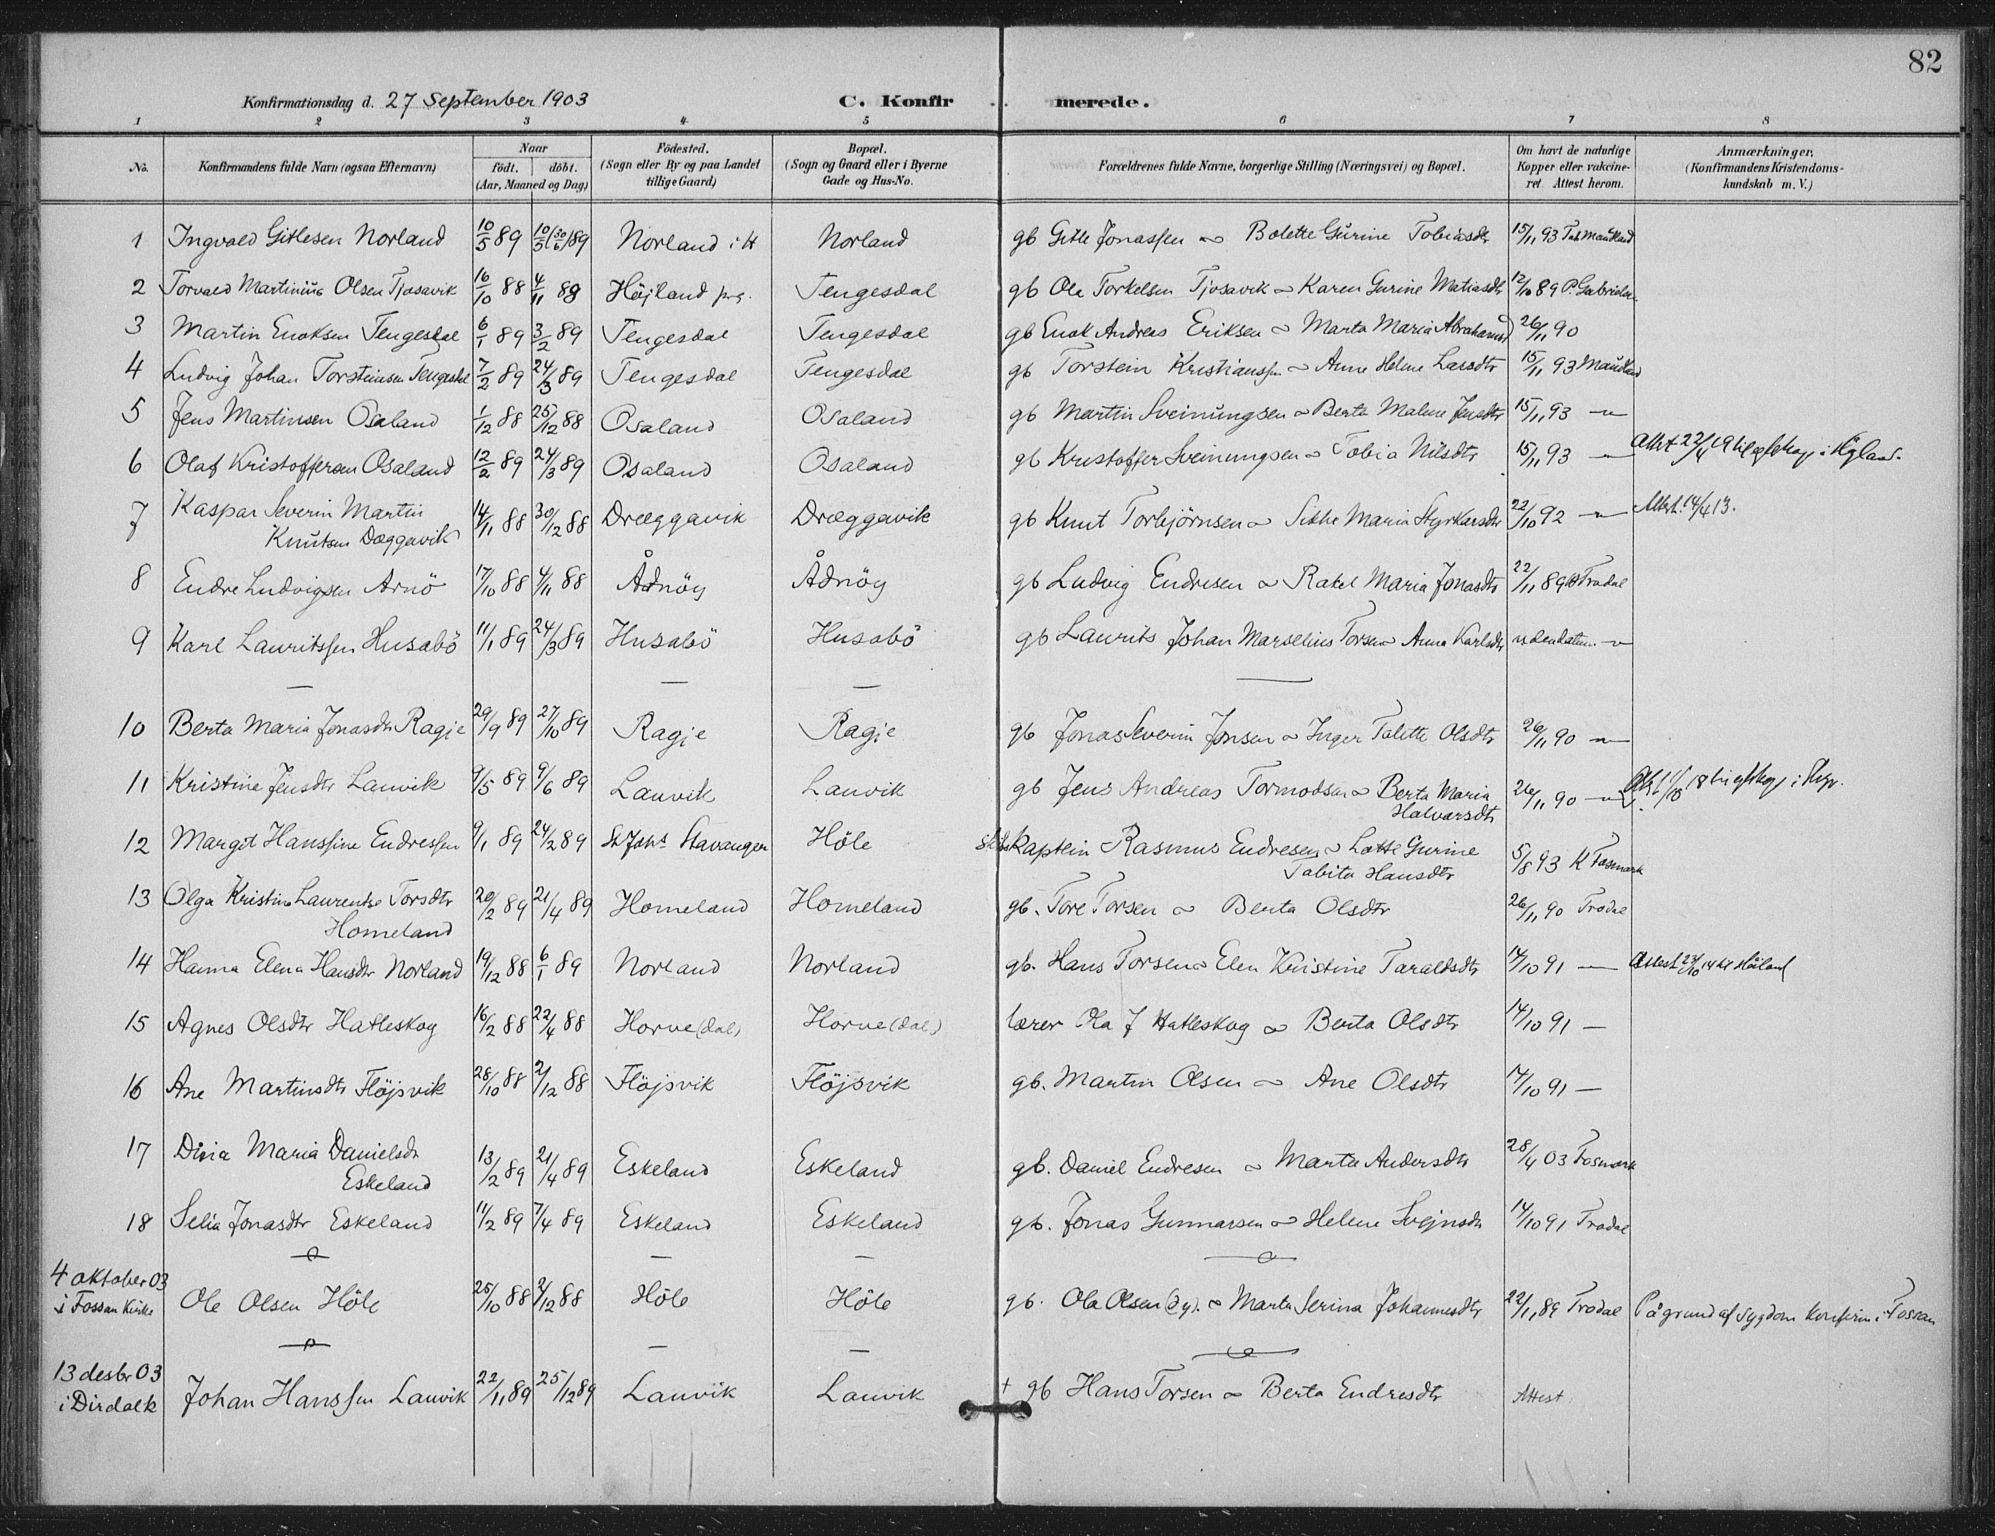 82
Konfirmationsdag d. 27 September 1903 C. Konfirmerede.
1 2 3 4 5 6 7 8
No. Konfirmandens fulde Navn (ogsaa Efternavn) Naar født. døbt. (Aar, Maaned og Dag) Fødested. (Sogn eller By og paa Landet tillige Gaard) Bopæl. (Sogn og Gaard eller i Byerne Gade og Hus-No. Forældrenes fulde Navne, borgerlige Stilling (Næringsvei) og Bopæl. Om havt de naturlige Kopper eller vakcineret Attest herom. Anmærkninger, (Konfirmandens Kristendomskundskab m. V.)
1 Ingvald Gitlesen Norland 10/5 89 10/5 (30/6) 89 Norland i H Norland gb Gitle Jonassen ~ Bolette Gurine Tobiasdtr 15/11 93 Maudland
2 Torvald Martinius Olsen Tjosavik 16/10 88 4/11 88 Højland prg. Tengesdal gb Ole Torkelsen Tjosavik ~ Karen Gurine Matiasdtr 12/10 89 P. Gabrielsen
3 Martin Enoksen Tengesdal 6/1 89 3/2 89 Tengesdal Tengesdal gb Enok Andreas Eriksen ~ Marta Maria Abrahamsd 26/11 90
4 Ludvig Johan Torsteinsen Tengesdal 7/2 89 24/3 89 Tengesdal Tengesdal gb Torstein Kristianssen ~ Anne Helene Larsdtr 15/11 93 Maudland
5 Jens Martinsen Osaland 1/12 88 25/12 88 Osaland Osaland gb Martin Sveinungsen ~ Berta Malene Jensdtr 15/11 93 —
6 Olaf Kristoffersen Osaland 12/2 89 24/3 89 Osaland Osaland gb Kristoffer Sveinungsen ~ Tobia Nilsdtr 15/11 93 — Attst 22/4 19 til ægteskap i Högland.
7 Kaspar Severin Martin 14/11 88 30/12 88 Dræggavik Dræggavik gb Knut Torbjørnsen ~ Sidse Maria Styrkarsdtr 22/10 92 — Attest 14/4 13.
Knutsen Dæggavik
8 Endre Ludvigsen Arnö 17/10 88 4/11 88 Ådnöy Ådnöy gb Ludvig Endresen ~ Rakel Maria Jonasdtr 22/11 89 Trodal
9 Karl Lauritssen Husabö 11/1 89 24/3 89 Husabö Husabö gb Laurits Johan Marselius Torsen ~ Anna Karlsdtr uden datum —
10 Berta Maria Jonasdtr Ragje 29/9 89 27/10 89 Ragje Ragje gb Jonas Severin Jonsen ~ Inger Talette Olsdtr 26/11 90 —
11 Kristine Jensdtr Lauvik 9/5 89 9/6 89 Lauvik Lauvik gb Jens Andreas Tormodsen ~ Berta Maria 26/11 90 —
Halvarsdtr
12 Margit Hanssine Endressen 9/1 89 24/2 89 St Johs Stavanger Höle kaptein Rasmus Endresen ~ Lotte Gurine 5/8 93 K Fosmark
Tabita Hansdtr
13 Olga Kristine Laurentse Torsdtr 20/2 89 21/4 89 Homeland Homeland gb. Tore Torsen ~ Berta Olsdtr 26/11 90 Trodal
Homeland
14 Hanna Elena Hansdtr Norland 19/12 88 6/1 89 Norland Norland gb. Hans Torsen ~ Elen Kristine Taraldsdtr 14/10 91 — Attest 23/10 14 til Höiland
15 Agnes Olsdtr Hatleskog 16/2 88 22/4 88 Horve (dal) Horve (dal) lærer Ola J Hatleskog ~ Berta Olsdtr 14/10 91 —
16 Ane Martinsdtr Flöjsvik 28/10 88 2/12 88 Flöjsvik Flöjsvik gb. Martin Olsen ~ Ane Olsdtr 14/10 91 —
17 Dina Maria Danielsdtr 13/2 89 21/4 89 Eskeland Eskeland gb. Daniel Endresen ~ Marta Andersdtr 28/4 03 Fosmark
Eskeland
18 Selia Jonasdtr Eskeland 11/2 89 7/4 89 Eskeland Eskeland gb. Jonas Gunnarsen ~ Helene Svejnsdtr 14/10 91 Trodal
4 oktober 03
i Fossan Kirke Ole Olsen Höle 25/10 88 2/12 88 Höle Höle gb. Ola Olsen ~ Marta Serina Johannesdtr 22/11 89 Trodal På grund af Sygdom konfirm. i Fossan
13 desbr 03
i Dirdal k Johan Hanssen Lauvik 22/11 89 25/12 89 Lauvik Lauvik + gb Hans Torsen ~ Berta Endresdtr Attest